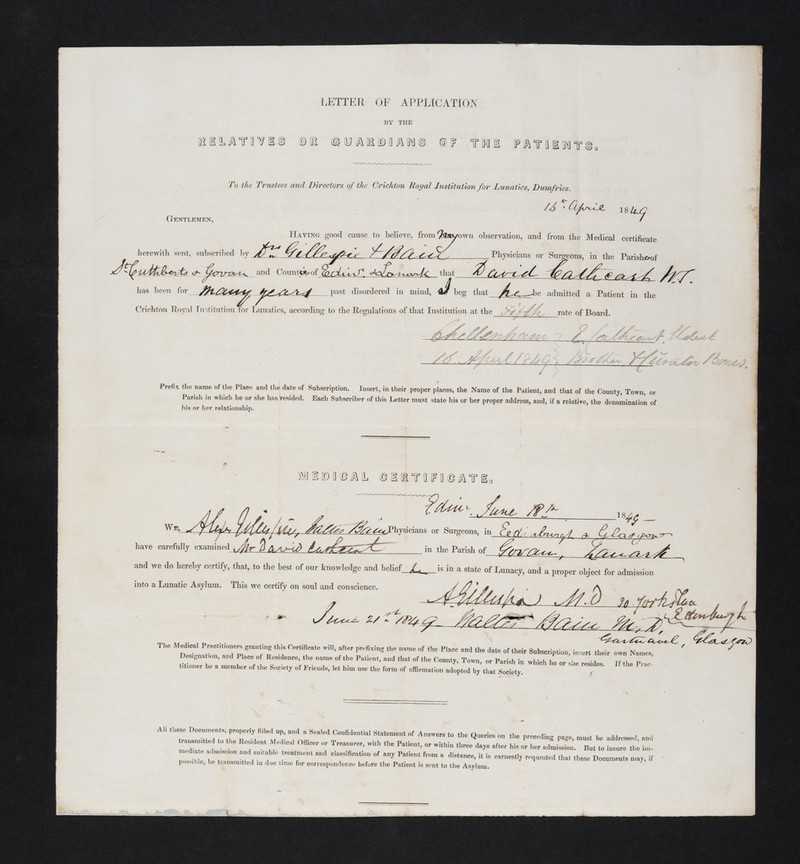 LETTER OF APPLICATION
BY THE
RELATIVES OR GUARDIANS OF THE PATIENTS.
To the Trustees and Directors of the Crichton Royal Institution for Lunatics, Dumfries.
16th April 1849
GENTLEMEN,
HAVING good cause to believe, from my own observation, and from the Medical certificate
herewith sent, subscribed by Drs Gillespie & Bain Physicians or Surgeons, in the Parishes of
St Cuthberts & Govan and Counties of Edinr. & Lanark that David Cathcart
has been for many years past disordered in mind, I beg that he be admitted a Patient in the
Crichton Royal Institution for Lunatics, according to the Regulations of that Institution at the Fifth rate of Board.
Cheltenham E. Cathcart, Eldest
16 April 1849 Brother & Curator Bonis.
Prefix the name of the Place and the date of Subscription. Insert, in their proper places, the Name of the Patient, and that of the County, Town, or
Parish in which he or she has resided. Each Subscriber of this Letter must state his or her proper address, and, if a relative, the denomination of
his or her relationship.
MEDICAL CERTIFICATE.
Edinr. June 18th 1849
WE, Alexr Gillespie, Walter Bain Physicians or Surgeons, in Edinburgh & Glasgow
have carefully examined Mr David Cathcart in the Parish of Govan, Lanark
and we do hereby certify, that, to the best of our knowledge and belief he is in a state of Lunacy, and a proper object for admission
into a Lunatic Asylum. This we certify on soul and conscience.
A Gillespie M.D 30 York Place
Edinburgh
June 21st 1849 Walter Bain M.D.
Gartnavel, Glasgow
The Medical Practitioners granting this Certificate will, after prefixing the name of the Place and the date of their Subscription, insert their own Names,
Designation, and Place of Residence, the name of the Patient, and that of the County, Town, or Parish in which he or she resides. If the Prac-
titioner be a member of the Society of Friends, let him use the form of affirmation adopted by that Society.
All these Documents, properly filled up, and a Sealed Confidential Statement of Answers to the Queries on the preceding page, must be addressed, and
transmitted to the Resident Medical Officer or Treasurer, with the Patient, or within three days after his or her admission. But to insure the im-
mediate admission and suitable treatment and classification of any Patient from a distance, it is earnestly requested that these Documents may, if
possible, be transmitted in due time for correspondence before the Patient is sent to the Asylum.